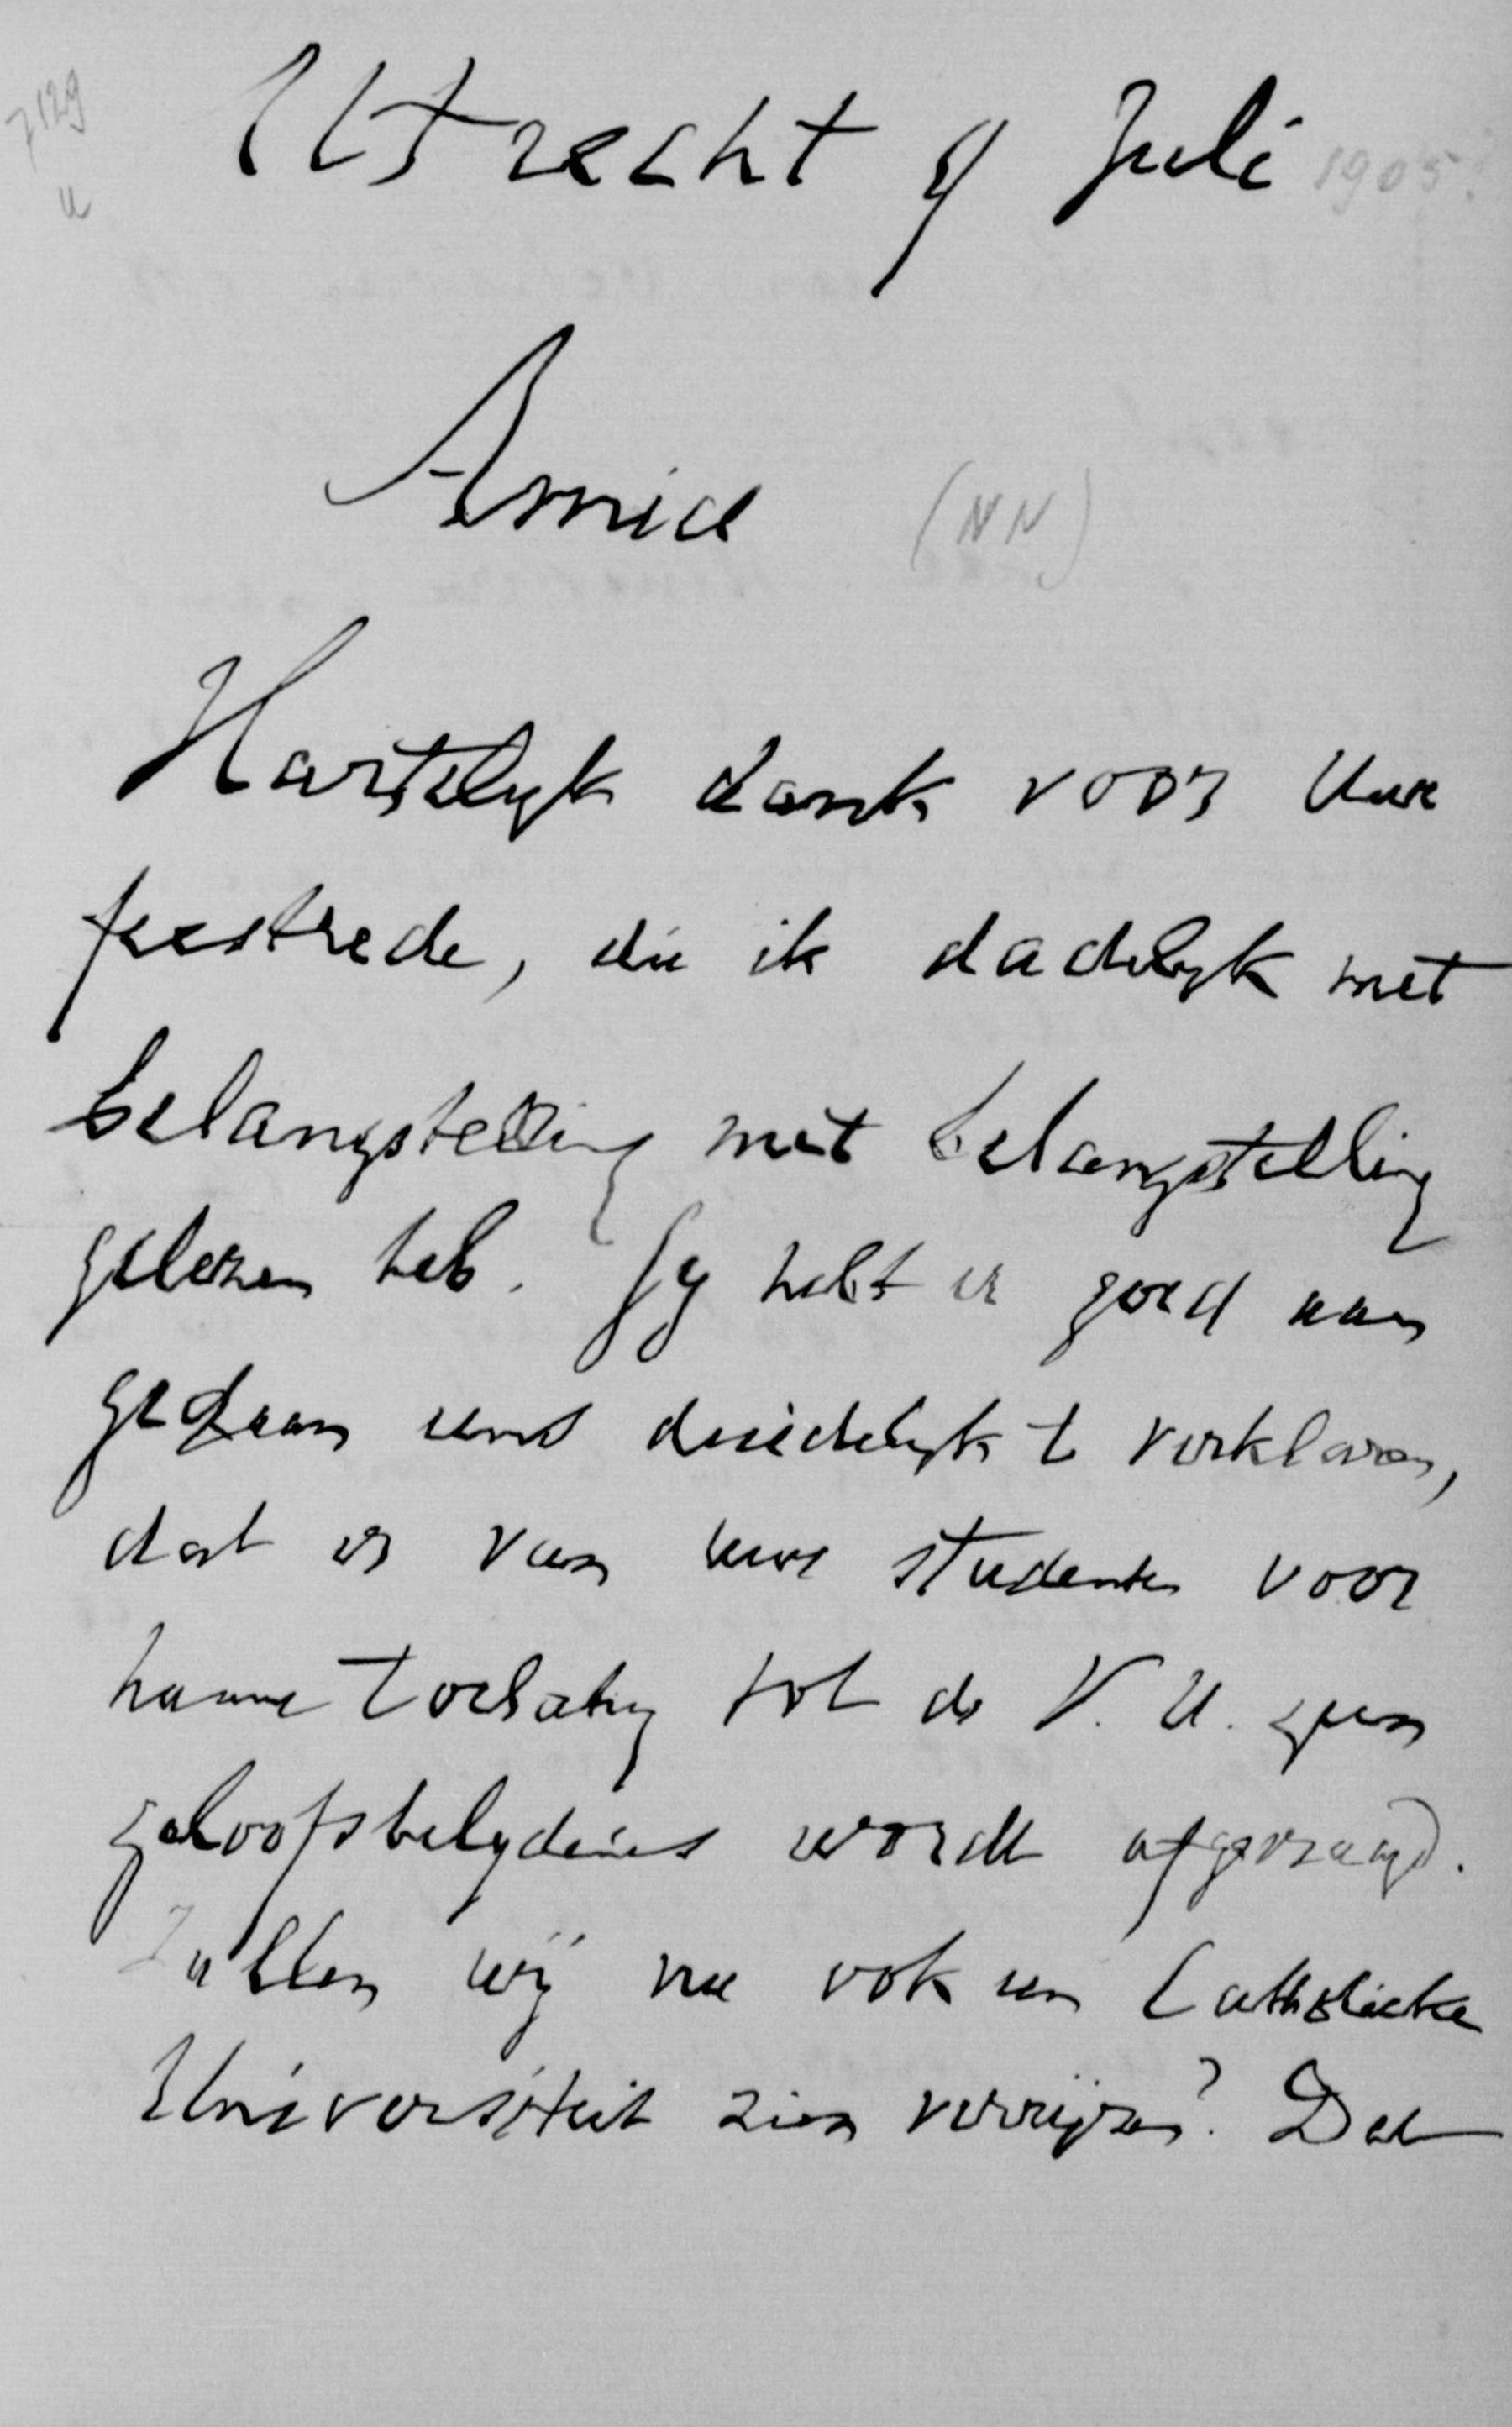 7129
u
Utrecht 9 Juli 1905.
Amice (NN)
Hartelyk dank voor Uwe
feestrede, die ik dadelyk met
belangstelling met belangstelling
gelezen heb. Gy hebt er goed aan
gedaan eens duidelyk te verklaren,
dat er van uwe studenten voor
hunne toelating tot de V. U. geen
geloofsbelydenis wordt afgevraagd.
Zullen wij nu ook een Catholieke
Universiteit zien verrijzen? Dat